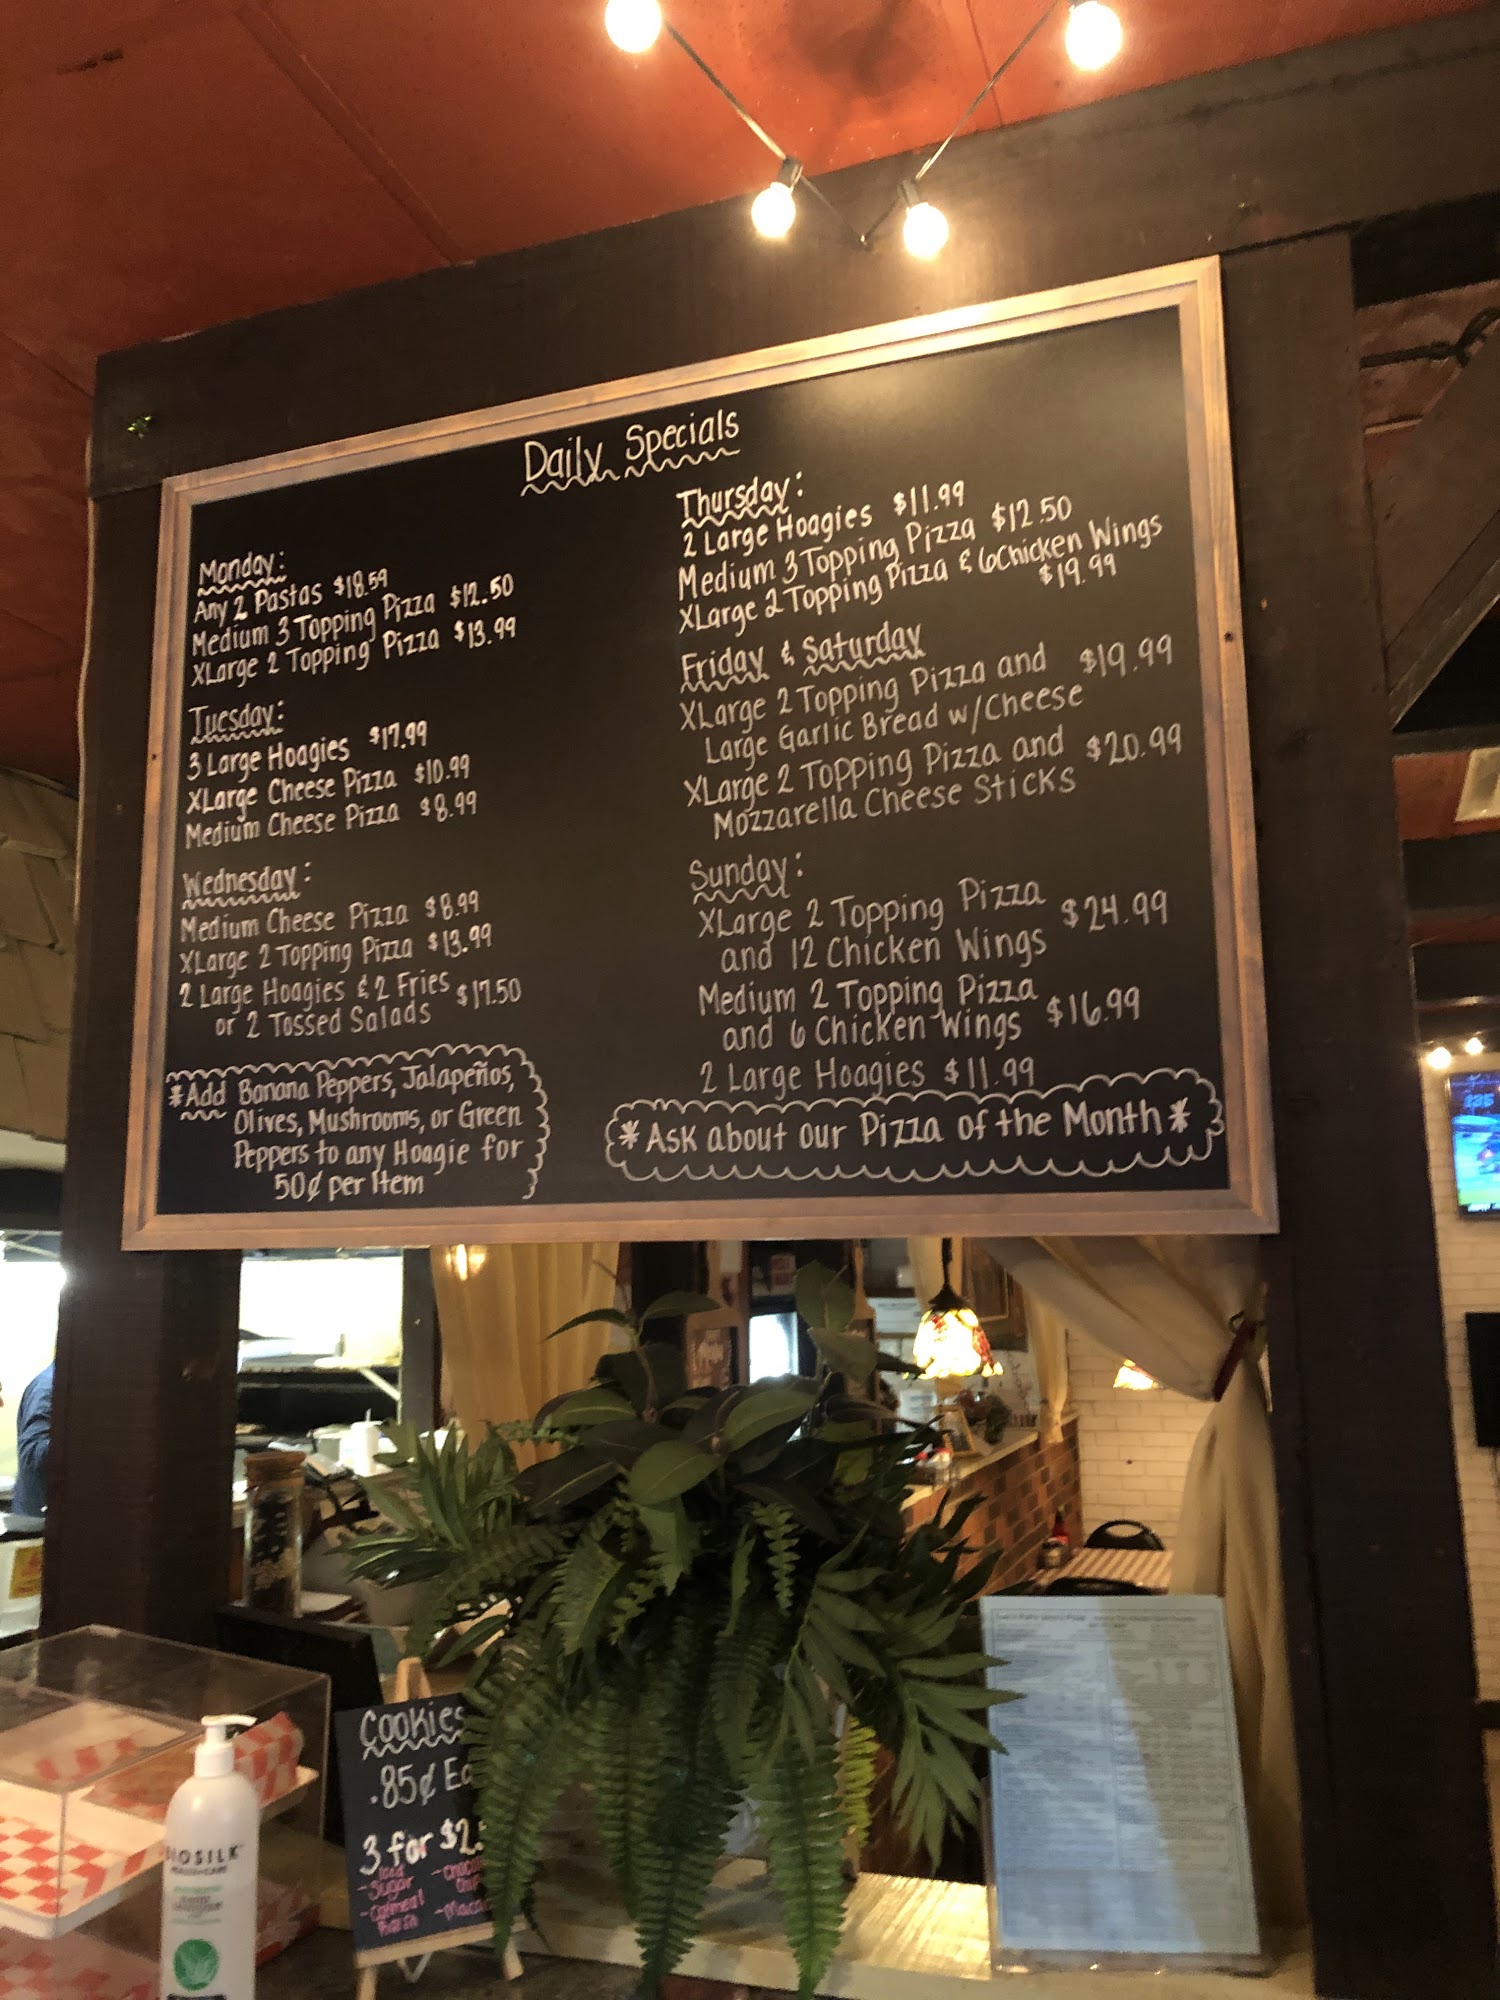 Daily Specials
Monday:
Any 2 Pastas $18.59
Medium 3 Topping Pizza $12.50
XLarge 2 Topping Pizza $13.99
Tuesday:
3 Large Hoagies $17.99
XLarge Cheese Pizza $10.99
Medium Cheese Pizza $8.99
Wednesday:
Medium Cheese Pizza $8.99
XLarge 2 Topping Pizza $13.99
2 Large Hoagies & 2 Fries $17.50
or 2 Tossed Salads
*Add Banana Peppers, Jalapeños,
Olives, Mushrooms, or Green
Peppers to any Hoagie for
50¢ per Item
Thursday:
2 Large Hoagies $11.99
Medium 3 Topping Pizza $12.50
XLarge 2 Topping Pizza & 6 Chicken Wings
$19.99
Friday & Saturday
XLarge 2 Topping Pizza and $19.99
Large Garlic Bread w/Cheese
XLarge 2 Topping Pizza and $20.99
Mozzarella Cheese Sticks
Sunday:
XLarge 2 Topping Pizza $24.99
and 12 Chicken Wings
Medium 2 Topping Pizza $16.99
and 6 Chicken Wings
2 Large Hoagies $11.99
*Ask about our Pizza of the Month*
Cookies
.85¢ Ea
3 for $2.
-Iced Sugar
-Oatmeal
Raisin